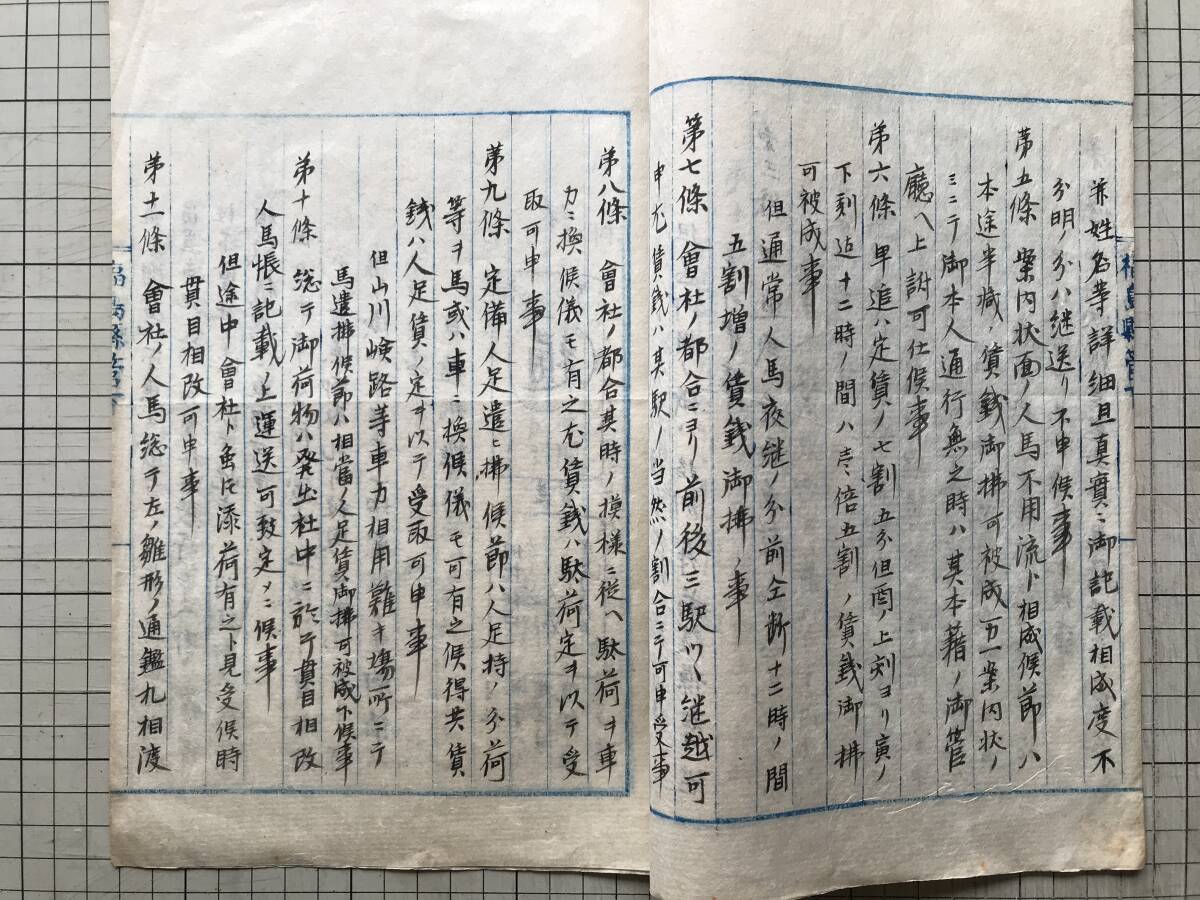 並姓名等詳細且真實ニ御記載相成度不
分明ノ分ハ継送リ不申候事
第五條 案内状面ノ人馬不用流ト相成候節ハ
本途半減ノ賃銭御拂可被成万一案内状ノ
ミニテ御本人通行無之時ハ其本籍ノ御管
廳ヘ上訴可仕候事
第六條 早追ハ定賃ノ七割五分但酉ノ上刻ヨリ寅ノ
下刻迠十二時ノ間ハ壱倍五割ノ賃銭御拂
可被成事
但通常人馬夜継ノ分前仝断十二時ノ間
五割増ノ賃銭御拂ノ事
第七條 會社ノ都合ニヨリ前後三駅ツヽ継越可
申尤賃銭ハ其駅ノ当然ノ割合ニテ可申受事
第八條 會社ノ都合其時ノ摸様ニ従ヘ駄荷ヲ車
力ニ換候儀モ有之尤賃銭ハ駄荷定ヲ以テ受
取可申事
第九條 定備人足遣ヒ拂候節ハ人足持ノ分荷
等ヲ馬或ハ車ニ換候儀モ可有之候得共賃
銭ハ人足賃ノ定ヲ以テ受取可申事
但山川嶮路等車力相用難キ場所ニテ
馬遣拂候節ハ相當ノ人足賃御拂可被成下候事
第十條 総テ御荷物ハ発出社中ニ於テ貫目相改
人馬帳ニ記載ノ上運送可致定メニ候事
但途中會社ト雖𪜈添荷有之ト見受候時
貫目相改可申事
第十一條 會社ノ人馬総テ左ノ雛形ノ通鑑札相渡
福島縣管下
福島縣管下